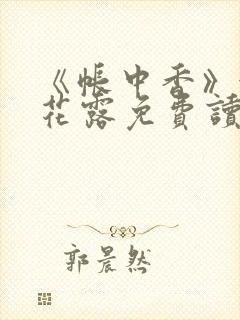 《帳中香》
花露免費讀
郭晨然